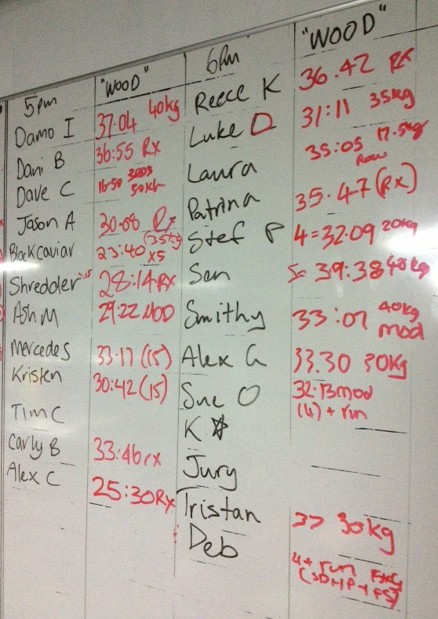 5pm "WOOD"
Damo I 37.04 40kg
Dani B 36:55 Rx
Dave C 16:50
Jason A 30.08 Rx
Blackcaviar 23:40 (35kg) x5
Shreddler 28:14 RX
Ash M 29:22 MOD
Mercedes 33.17 (15)
Kristen 30:42 (15)
Tim C
Carly B 33:46 rx
Alex C 25:30 Rx
6pm "WOOD"
Reece K 36.42 Rx
Luke D 31:11 35kg
Laura 35:05 17.5kg
Row
Patrina 35.47 (Rx)
Stef P 4=32:09 20kg
San 5=39:38 40kg
Smithy 33:07 40kg mod
Alex G 33.30 30kg
Sue O 32:13 mod
(4) + run
K ☆
Jury
Tristan 37 30kg
Deb 4+ run 15kg